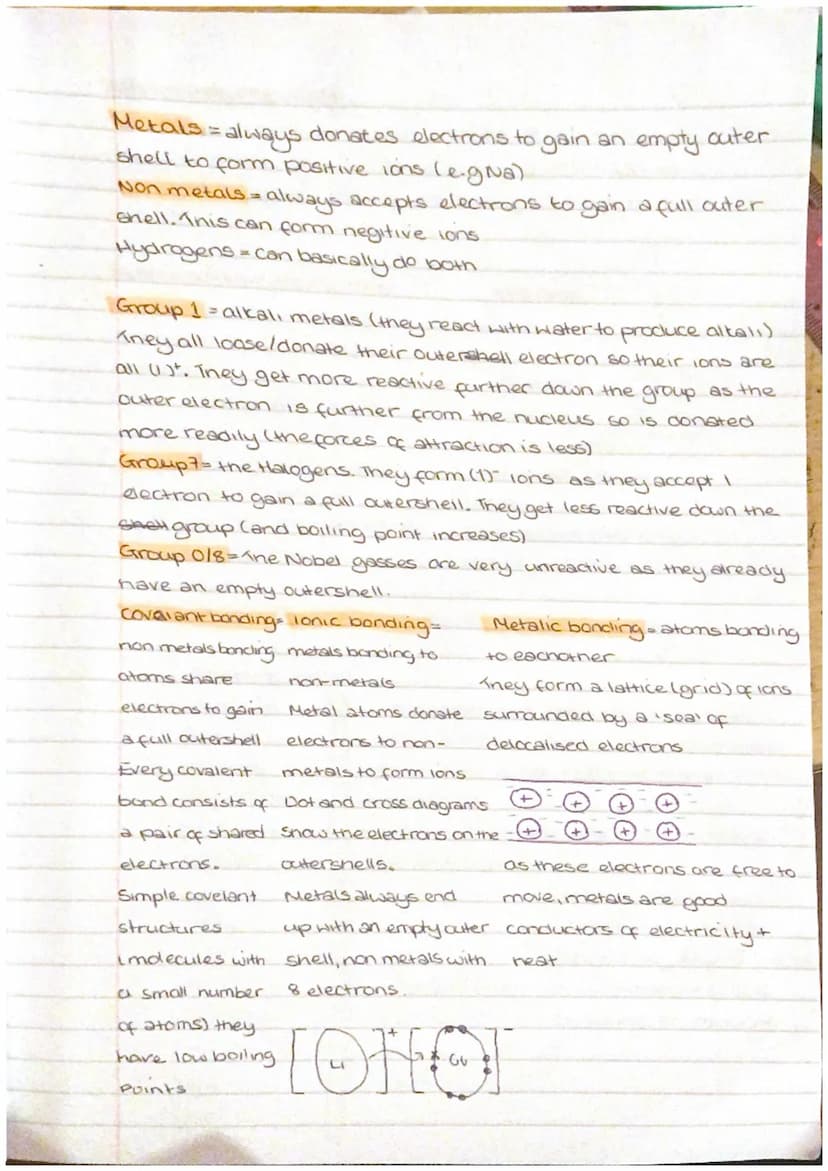 Metals = always donates electrons to gain an empty outer
shell to form positive ions (e.g Na)
Non metals = always accepts electrons to gain a full outer
shell. This can form negitive ions
Hydrogens = can basically do both
Group 1 = alkali metals (they react with water to produce alkali)
They all loose/donate their outershell electron so their ions are
all (1)+. They get more reactive further down the group as the
outer electron is further from the nucleus so is donated
more readily (the forces of attraction is less)
Group 7 = the Halogens. They form (1)- ions as they accept 1
electron to gain a full outershell. They get less reactive down the
shell group (and boiling point increases)
Group 0/8 = The Nobel gasses are very unreactive as they already
have an empty outershell.
Covalant bonding =
non metals bonding
atoms share
electrons to gain
a full outershell
Every covalent
bond consists of
a pair of shared
electrons.
Simple covelant
structures
(molecules with
a small number
of atoms) they
have low boiling
points
Ionic bonding =
metals bonding to
non-metals
Metal atoms donate
electrons to non-
metals to form ions
Dot and cross diagrams
show the electrons on the
outershells.
Metals always end
up with an empty outer
shell, non metals with
8 electrons.
[ Li ]+ [ ]-
Metalic bonding = atoms bonding
to eachother
They form a lattice (grid) of ions
surrounded by a 'sea' of
delocalised electrons
+ - + - + - + -
- + - + - + - +
as these electrons are free to
move, metals are good
conductors of electricity +
heat